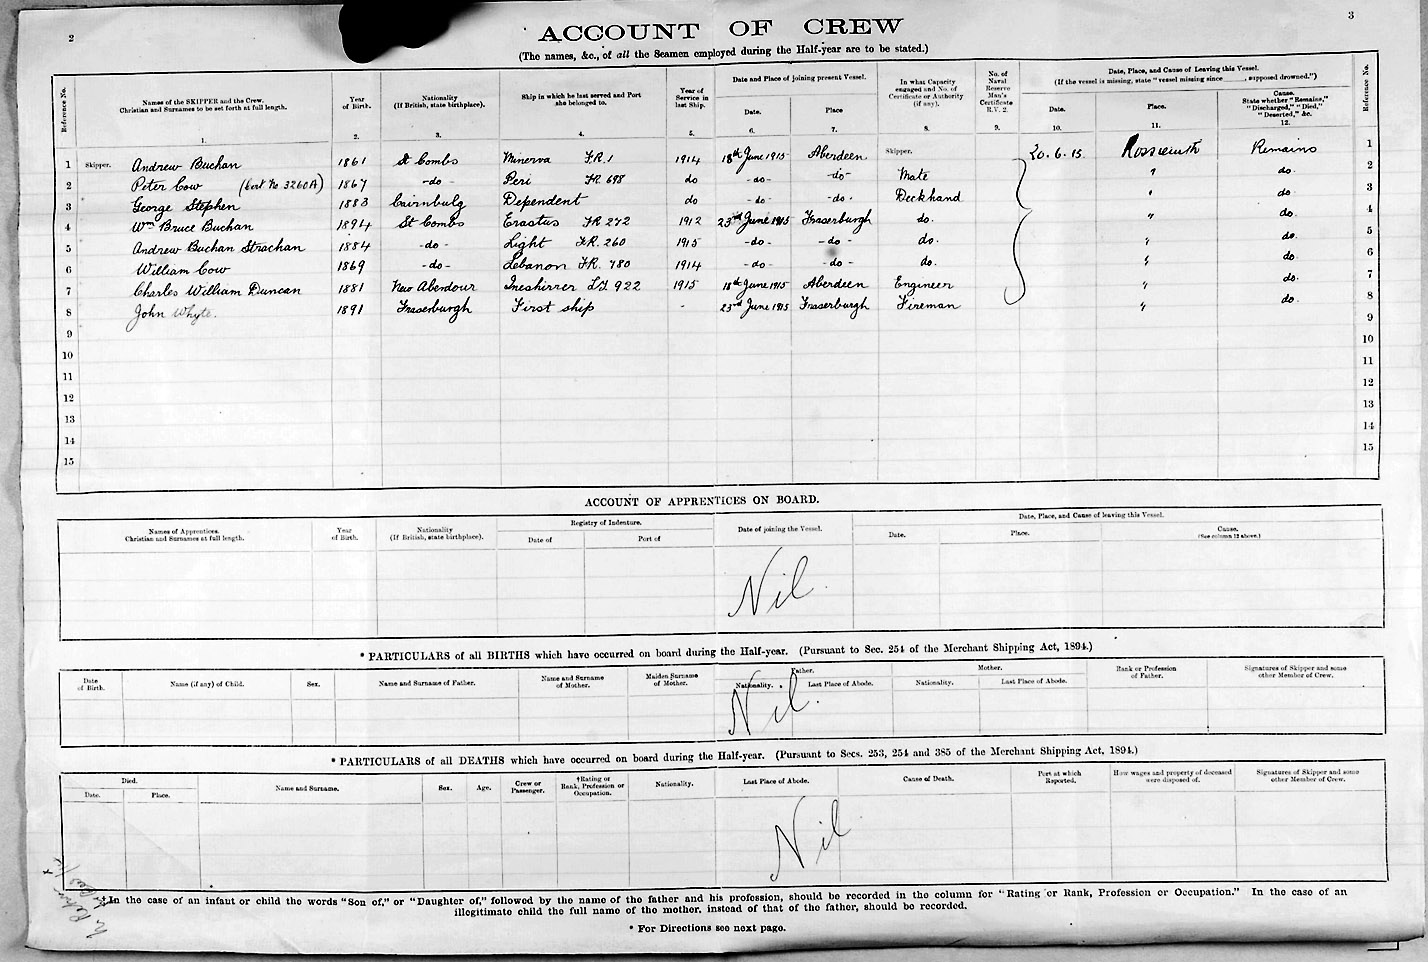 2
3
ACCOUNT OF CREW
(The names, &c., of all the Seamen employed during the Half-year are to be stated.)
Reference No. | Names of the SKIPPER and the Crew. Christian and Surnames to be set forth at full length. | Year of Birth. | Nationality (If British, state birthplace). | Ship in which he last served and Port she belonged to. | Year of Service in last Ship. | Date and Place of joining present Vessel. Date. Place | In what Capacity engaged and No. of Certificate or Authority (if any). | No. of Naval Reserve Man's Certificate R.V. 2. | Date, Place, and Cause of Leaving this Vessel. (If the vessel is missing, state "vessel missing since ____, supposed drowned.") Date. Place. Cause. State whether "Remains," "Discharged," "Died," "Deserted," &c. | Reference No.
1. 2. 3. 4. 5. 6. 7. 8. 9. 10. 11. 12.
1 Skipper. Andrew Buchan 1861 St Combs Minerva FR. 1 1914 18th June 1915 Aberdeen Skipper. 20.6.15 Remains 1
2 Peter Cow (Cert No 3260A) 1867 -do- Peri FR 698 do -do- -do- Mate " do. 2
3 George Stephen 1883 Cairnbulg Dependent do -do- -do- Deckhand " do 3
4 Wm Bruce Buchan 1894 St Combs Erastus FR 272 1912 23rd June 1915 Fraserburgh do. " do. 4
5 Andrew Buchan Strachan 1884 -do- Light FR. 260 1915 -do- -do- do. " do. 5
6 William Cow 1869 -do- Lebanon FR. 780 1914 -do- -do- do. " do. 6
7 Charles William Duncan 1881 New Aberdour LT 922 1915 18th June 1915 Aberdeen Engineer " do. 7
8 John Whyte. 1891 Fraserburgh First ship - 23rd June 1915 Fraserburgh Fireman " do. 8
9 9
10 10
11 11
12 12
13 13
14 14
15 15
ACCOUNT OF APPRENTICES ON BOARD.
Names of Apprentices. Christian and Surnames at full length. | Year of Birth. | Nationality (If British, state birthplace). | Registry of Indenture. Date of Port of | Date of joining the Vessel. | Date, Place, and Cause of leaving this Vessel. Date. Place. Cause. (See column 12 above.)
Nil
* PARTICULARS of all BIRTHS which have occurred on board during the Half-year. (Pursuant to Sec. 254 of the Merchant Shipping Act, 1894.)
Date of Birth. | Name (if any) of Child. | Sex. | Name and Surname of Father. | Name and Surname of Mother. | Maiden Surname of Mother. | Father. Nationality. Last Place of Abode. | Mother. Nationality. Last Place of Abode. | Rank or Profession of Father. | Signatures of Skipper and some other Member of Crew.
Nil.
* PARTICULARS of all DEATHS which have occurred on board during the Half-year. (Pursuant to Secs. 253, 254 and 385 of the Merchant Shipping Act, 1894.)
Died. Date. Place. | Name and Surname. | Sex. | Age. | Crew or Passenger. | †Rating or Rank, Profession or Occupation. | Nationality. | Last Place of Abode. | Cause of Death. | Port at which Reported. | How wages and property of deceased were disposed of. | Signatures of Skipper and some other Member of Crew.
Nil
In the case of an infant or child the words "Son of," or "Daughter of," followed by the name of the father and his profession, should be recorded in the column for "Rating or Rank, Profession or Occupation." In the case of an
illegitimate child the full name of the mother, instead of that of the father, should be recorded.
* For Directions see next page.